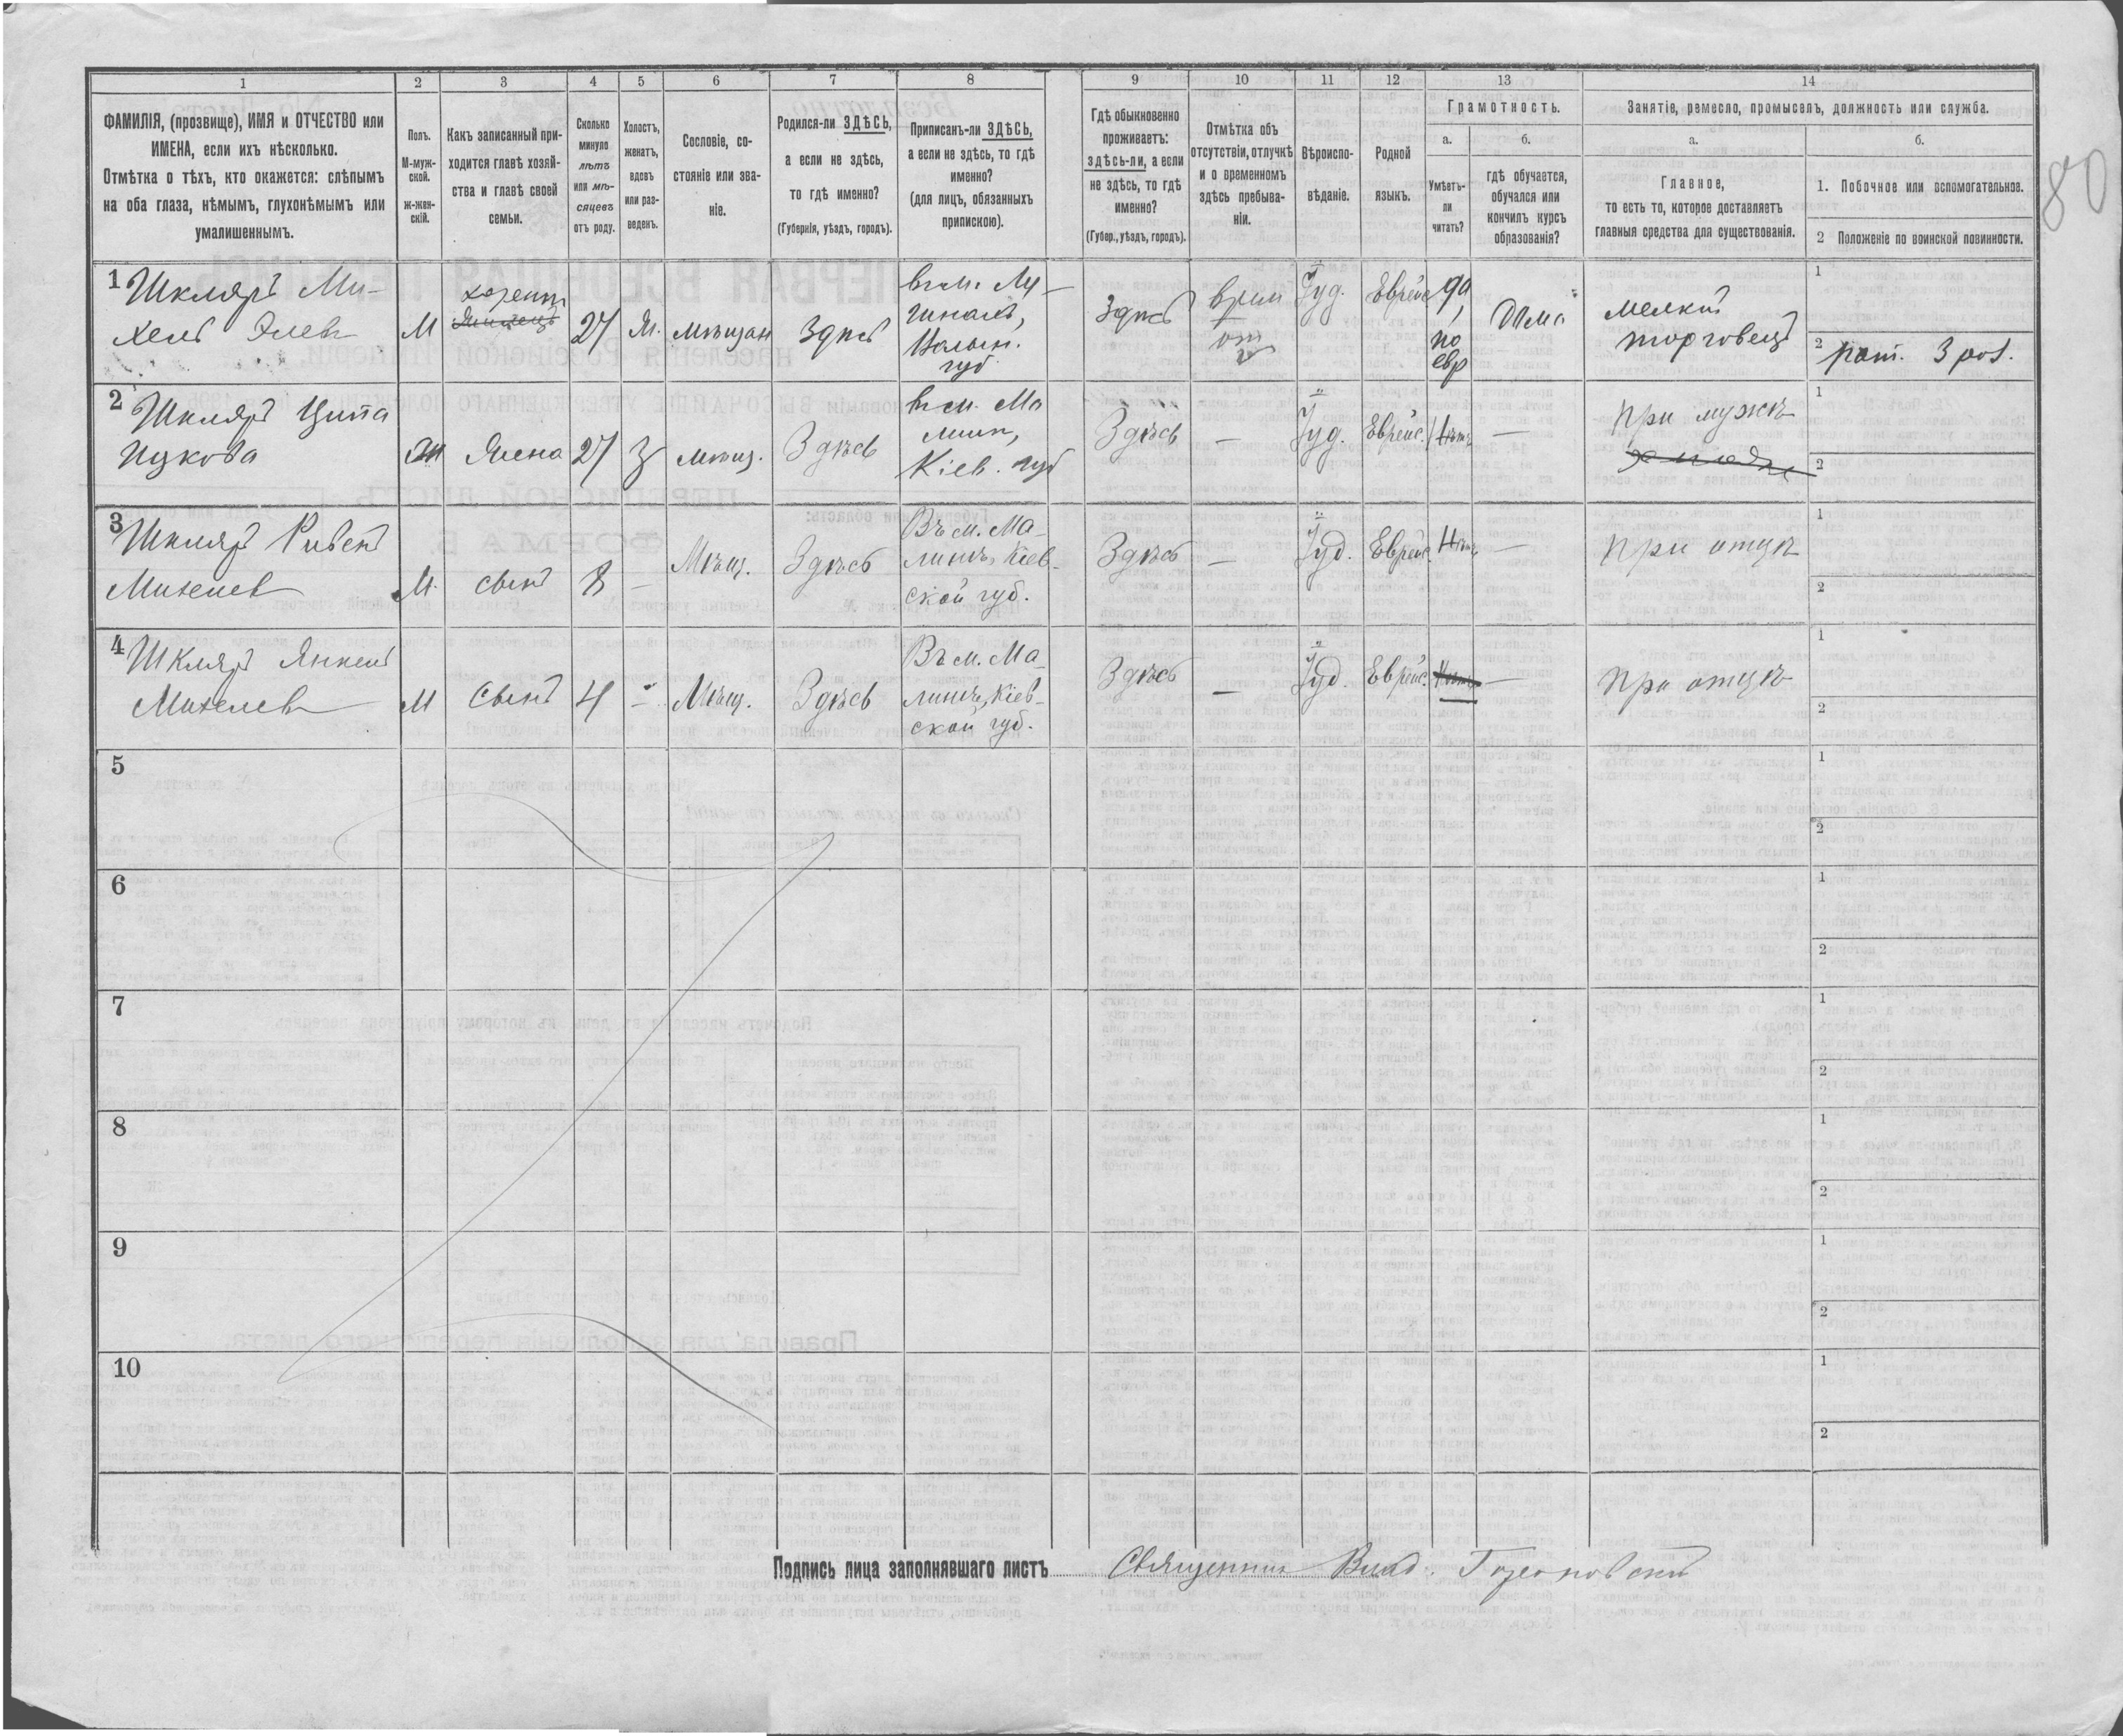 80
1 2 3 4 5 6 7 8 9 10 11 12 13 14
ФАМИЛІЯ, (прозвище), ИМЯ и ОТЧЕСТВО или
ИМЕНА, если ихъ нѣсколько.
Отмѣтка о тѣхъ, кто окажется: слѣпымъ
на оба глаза, нѣмымъ, глухонѣмымъ или
умалишеннымъ.
Полъ.
М-муж-
ской.
ж-жен-
скій.
Какъ записанный при-
ходится главѣ хозяй-
ства и главѣ своей
семьи.
Сколько
минуло
лѣтъ
или мѣ-
сяцевъ
отъ роду.
Холостъ,
женатъ,
вдовъ
или раз-
веденъ.
Сословіе, со-
стояніе или зва-
ніе.
Родился-ли ЗДѢСЬ,
а если не здѣсь,
то гдѣ именно?
(Губернія, уѣздъ, городъ).
Приписанъ-ли ЗДѢСЬ,
а если не здѣсь, то гдѣ
именно?
(для лицъ, обязанныхъ
припискою).
Гдѣ обыкновенно
проживаетъ:
здѣсь-ли, а если
не здѣсь, то гдѣ
именно?
(Губер., уѣздъ, городъ).
Отмѣтка объ
отсутствіи, отлучкѣ
и о временномъ
здѣсь пребыва-
ніи.
Вѣроиспо-
вѣданіе.
Родной
языкъ.
Грамотность.
а.
Умѣетъ-
ли
читать?
б.
гдѣ обучается,
обучался или
кончилъ курсъ
образованія?
Занятіе, ремесло, промыселъ, должность или служба.
а.
Главное,
то есть то, которое доставляетъ
главныя средства для существованія.
б.
1. Побочное или вспомогательное.
2 Положеніе по воинской повинности.
1 Шкляръ Ми-
хель Элев
М
27
Ж.
мѣщан
Здѣсь
Волын.
губ
Здѣсь
врем
от
Іуд.
Еврейс
да,
по
евр
Дома
мелкій
торговецъ
1
2 рат. 3 раз.
2 Шкляръ Ципа
Ицкова
Ж
Жена
27
З
мѣщ.
Здѣсь
въ м. Ма
лин,
Кіев. губ
Здѣсь
—
Іуд.
Еврейс.
Нѣтъ
—
При мужѣ
1
2
3 Шкляръ Ривен
Михелев
М.
сынъ
8
—
Мѣщ.
Здѣсь
Въ м. Ма-
линѣ, Кіев-
ской губ.
Здѣсь
—
Іуд.
Еврейс.
Нѣтъ
—
При отцѣ
1
2
4 Шкляръ Янкель
Михелев
М
Сынъ
4
-
Мѣщ.
Здѣсь
Въ м. Ма-
линѣ, Кіев-
ской губ.
Здѣсь
—
Іуд.
Еврейс.
Нѣтъ
—
При отцѣ
1
2
5
1
2
6
1
2
7
1
2
8
1
2
9
1
2
10
1
2
Подпись лица заполнявшаго листъ Священник Влад.